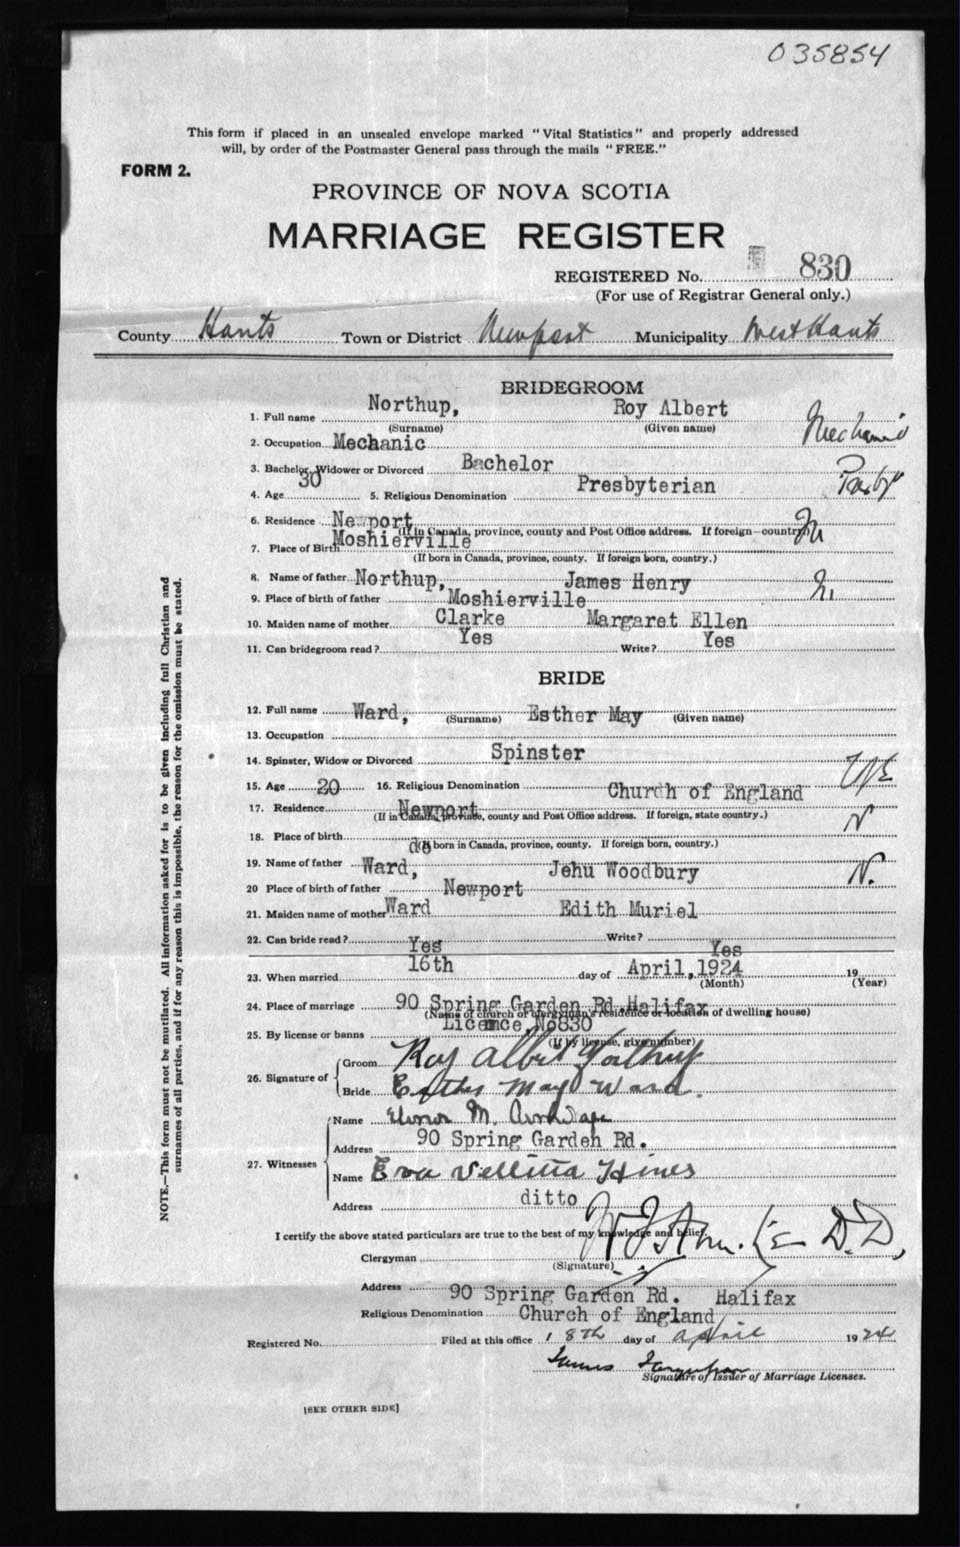 035854
This form if placed in an unsealed envelope marked "Vital Statistics" and properly addressed
will, by order of the Postmaster General pass through the mails "FREE."
FORM 2.
PROVINCE OF NOVA SCOTIA
MARRIAGE REGISTER
REGISTERED No. 830
(For use of Registrar General only.)
County Hants Town or District Newport Municipality West Hants
BRIDEGROOM
1. Full name Northup, Roy Albert
(Surname) (Given name)
2. Occupation Mechanic Mechanic
3. Bachelor, Widower or Divorced Bachelor
4. Age 30 5. Religious Denomination Presbyterian
6. Residence Newport
(If in Canada, province, county and Post Office address. If foreign—country)
7. Place of Birth Moshierville
(If born in Canada, province, county. If foreign born, country.)
8. Name of father Northup, James Henry
9. Place of birth of father Moshierville
10. Maiden name of mother Clarke Margaret Ellen
11. Can bridegroom read? Yes Write? Yes
BRIDE
12. Full name Ward, (Surname) Esther May (Given name)
13. Occupation
14. Spinster, Widow or Divorced Spinster
15. Age 20 16. Religious Denomination Church of England
17. Residence Newport
(If in Canada, province, county and Post Office address. If foreign, state country.)
18. Place of birth do
(If born in Canada, province, county. If foreign born, country.)
19. Name of father Ward, Jehu Woodbury N.
20 Place of birth of father Newport
21. Maiden name of mother Ward Edith Muriel
22. Can bride read? Yes Write? Yes
23. When married 16th day of April, 1924 19
(Month) (Year)
24. Place of marriage 90 Spring Garden Rd. Halifax
(Name of church or clergyman's residence or location of dwelling house)
25. By license or banns Licence No830
(If by license, give number)
26. Signature of Groom Roy Albert Northup
Bride Esther May Ward.
27. Witnesses Name M.
Address 90 Spring Garden Rd.
Name Eva Hines
Address ditto
I certify the above stated particulars are true to the best of my knowledge and belief.
Clergyman D.D.
(Signature)
Address 90 Spring Garden Rd. Halifax
Religious Denomination Church of England
Registered No. Filed at this office 18th day of April 1924
James Farquhar
Signature of Issuer of Marriage Licenses.
[SEE OTHER SIDE]
NOTE.—This form must not be mutilated. All information asked for is to be given including full Christian and
surnames of all parties, and if for any reason this is impossible, the reason for the omission must be stated.